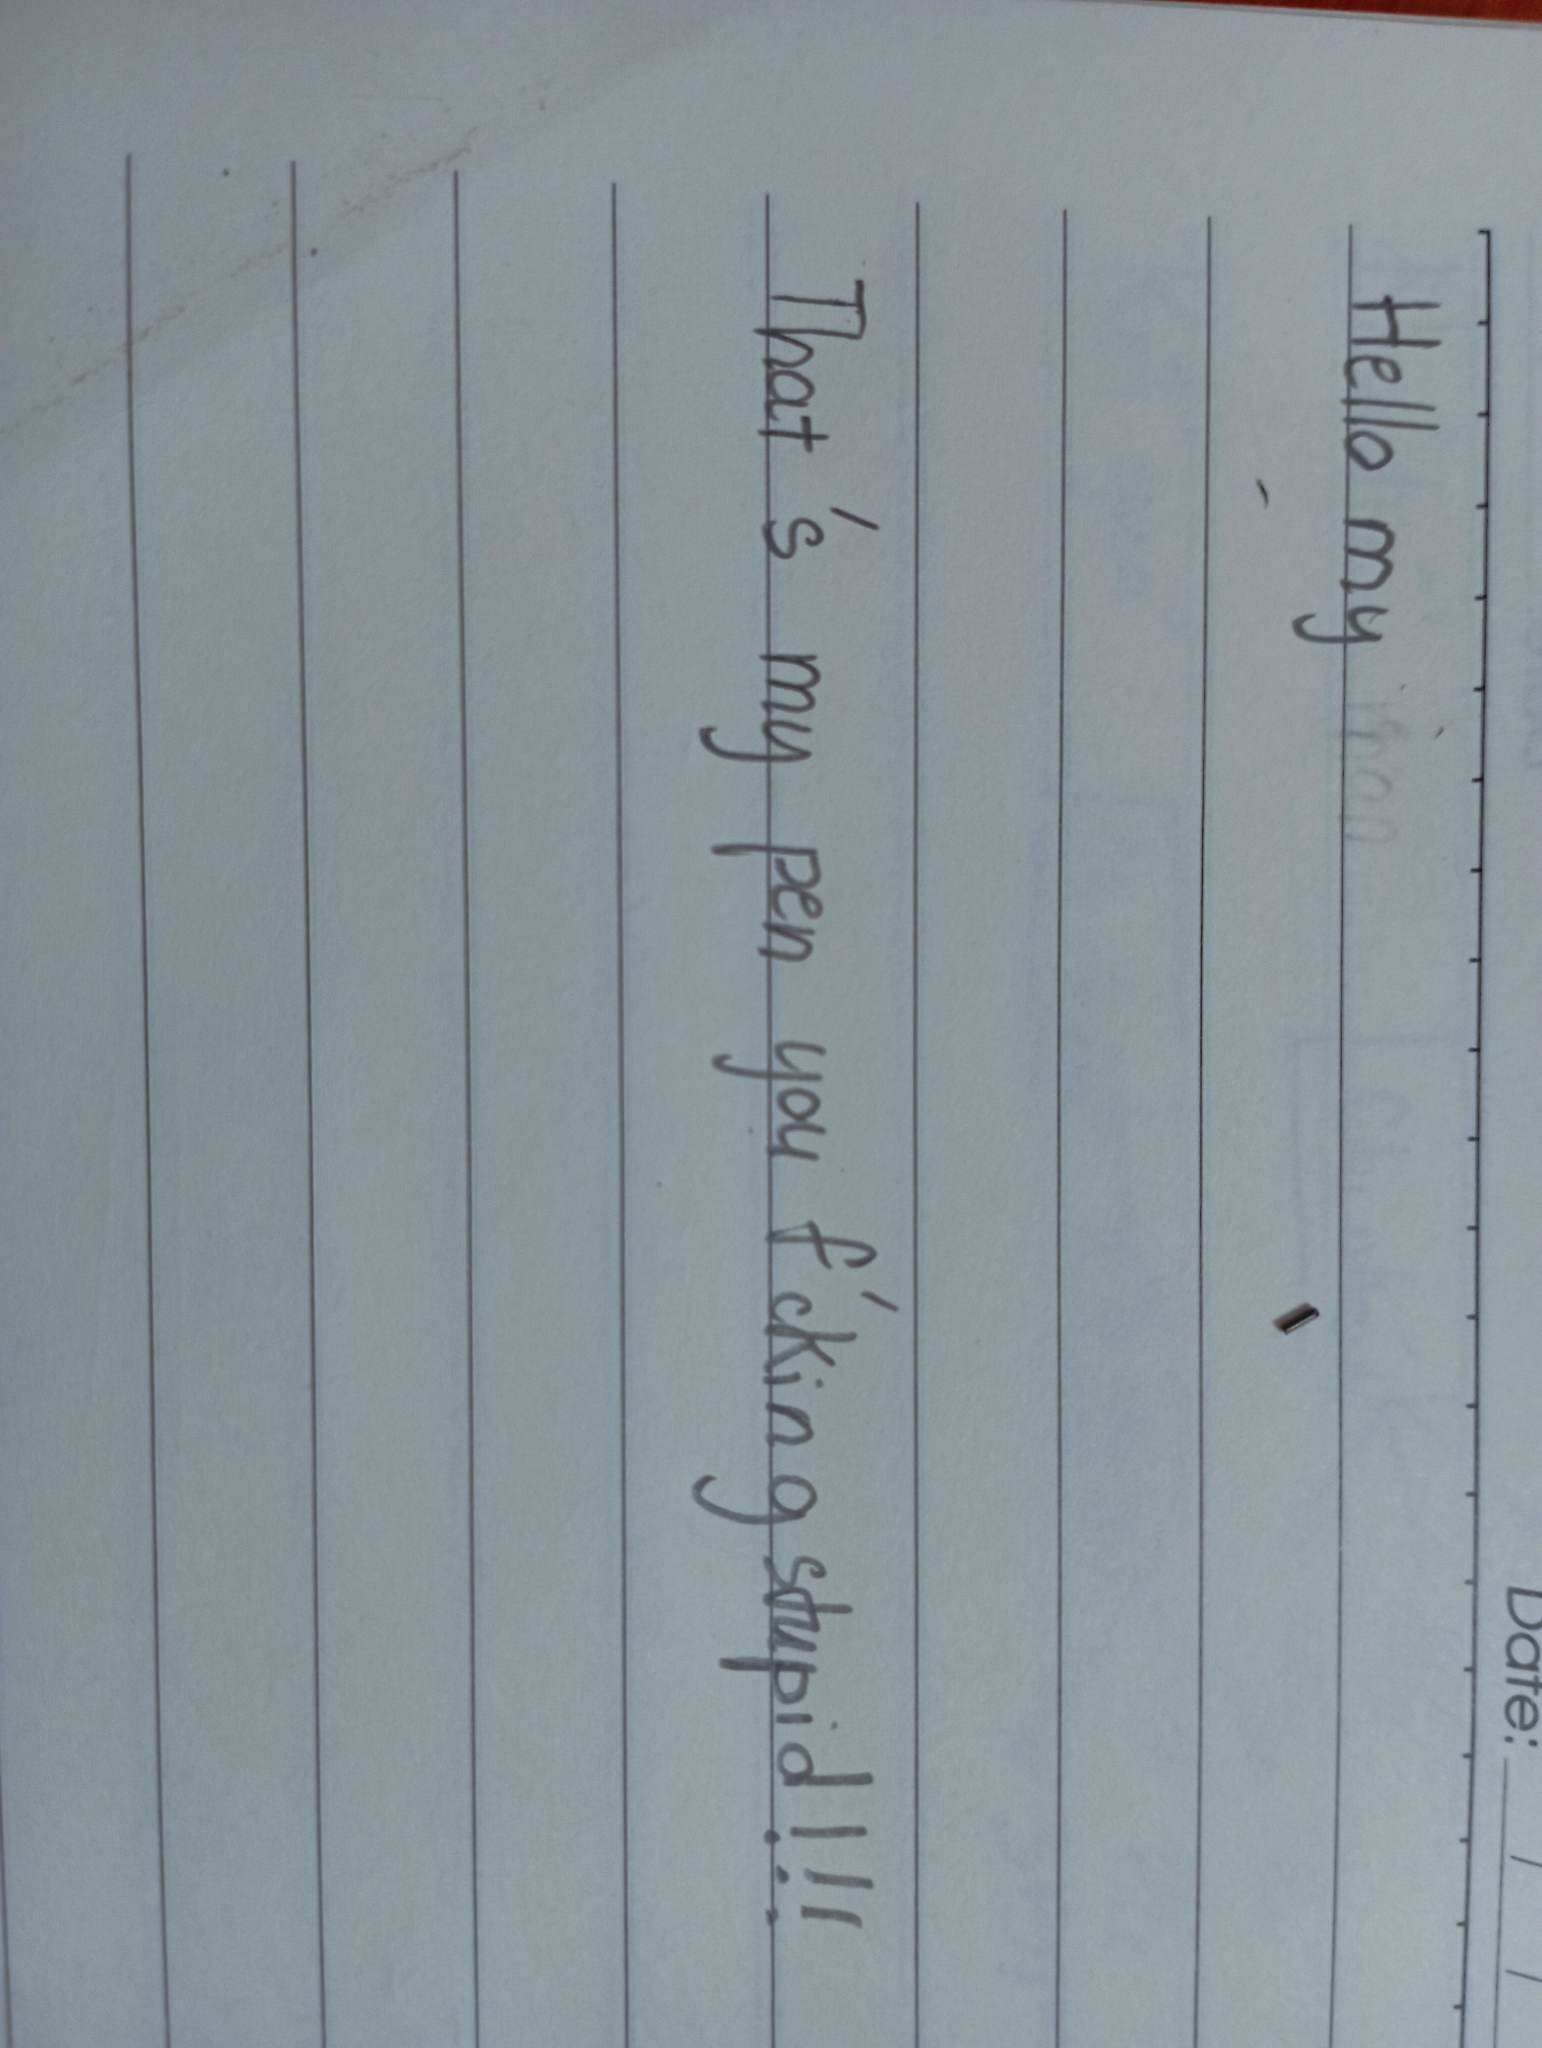 Date: / /
Hello my
That's my pen you f'cking stupid!!!